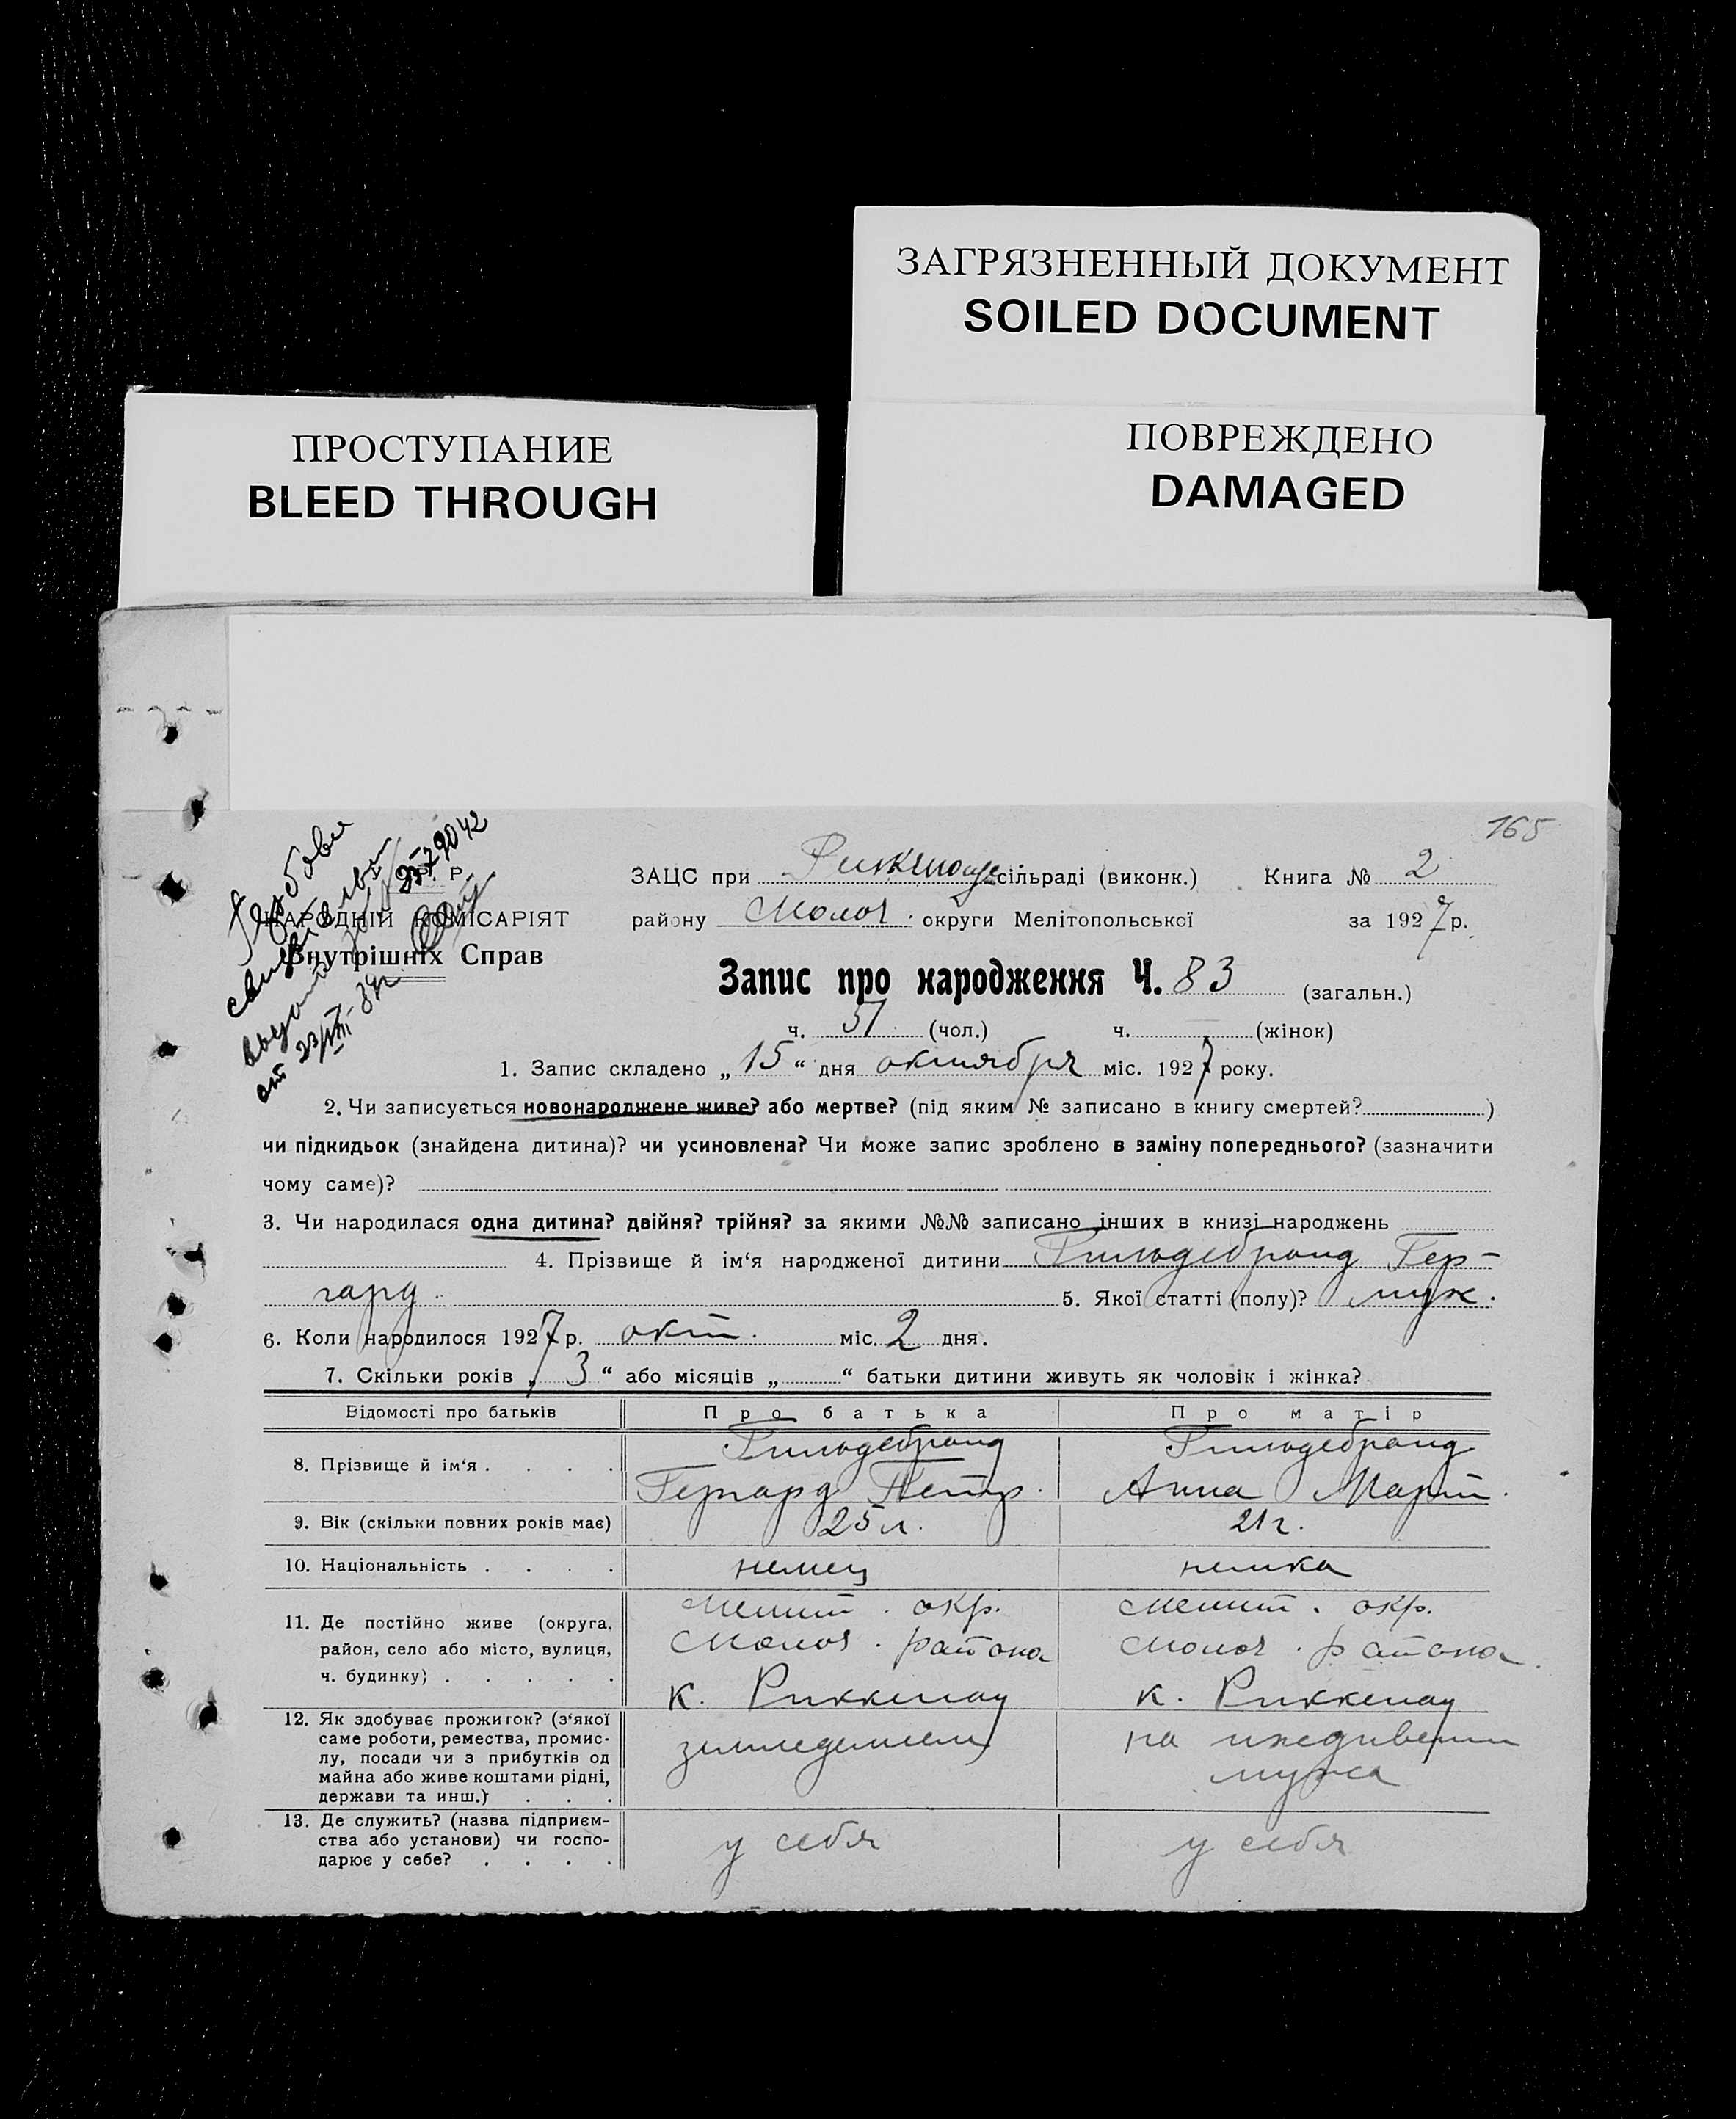 ЗАГРЯЗНЕННЫЙ ДОКУМЕНТ
SOILED DOCUMENT
ПРОСТУПАНИЕ
BLEED THROUGH
ПОВРЕЖДЕНО
DAMAGED
165
Р. Р.
НАРОДНІЙ КОМІСАРІЯТ
Внутрішніх Справ
ЗАЦС при сільраді (виконк.) Книга № 2
району Молоч. округи Мелітопольської за 1927 р.
Запис про народження Ч. 83 (загальн.)
ч. 51 (чол.) ч. (жінок)
1. Запис складено „ 15 “ дня октября міс. 1927 року.
2. Чи записується новонароджене живе? або мертве? (під яким № записано в книгу смертей? )
чи підкидьок (знайдена дитина)? чи усиновлена? Чи може запис зроблено в заміну попереднього? (зазначити
чому саме)?
3. Чи народилася одна дитина? двійня? трійня? за якими №№ записано інших в книзі народжень
4. Прізвище й ім‘я народженої дитини Гильдебранд Гер-
гард 5. Якої статті (полу)? муж.
6. Коли народилося 1927 р. окт. міс. 2 дня.
7. Скільки років „ 3 “ або місяців „ “ батьки дитини живуть як чоловік і жінка?
Відомості про батьків Про батька Про матір
8. Прізвище й ім‘я . . . . Гильдебранд Гильдебранд
Гергард Петр. Анна Март.
9. Вік (скільки повних років має) 25 л. 21 г.
10. Національність . . . . немец немка
11. Де постійно живе (округа, Мелит. окр. Мелит. окр.
район, село або місто, вулиця, Молоч. района Молоч. района
ч. будинку) . . . . . к. Риккенау к. Риккенау
12. Як здобуває прожиток? (з‘якої
саме роботи, ремества, промис- земледелием на иждивении
лу, посади чи з прибутків од мужа
майна або живе коштами рідні,
держави та инш.) . . .
13. Де служить? (назва підприєм-
ства або установи) чи госпо- у себя у себя
дарює у себе? . . . .